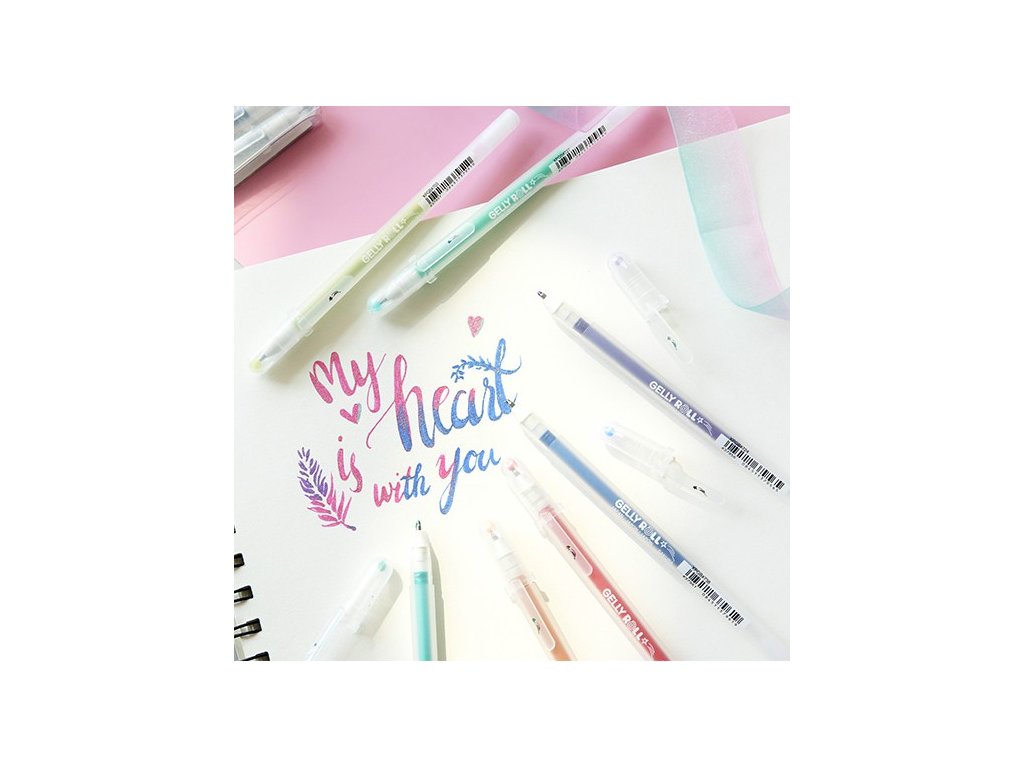 GELLY ROLL
GELLY ROLL
My
heart
is
with you
GELLY ROLL
GELLY ROLL
GELLY ROLL